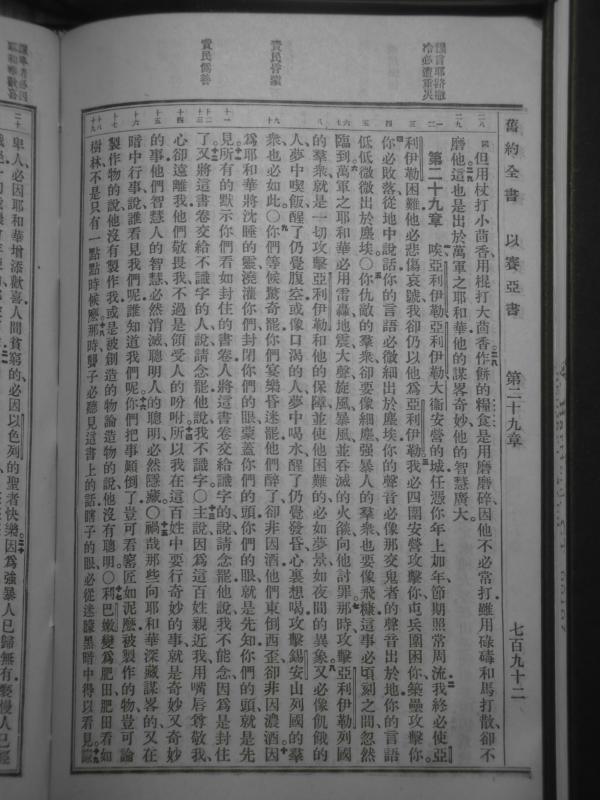 舊約全書 以賽亞書 第二十九章 七百九十二
但用杖打小茴香用棍打大茴香作餅的糧食是用磨磨碎因他不必常打雖用碌碡和馬打散卻不
磨他這也是出於萬軍之耶和華他的謀略奇妙他的智慧廣大
第二十九章 唉亞利伊勒亞利伊勒大衞安營的城任憑你年上加年節期照常周流我終必使亞
利伊勒困難他必悲傷哀號我卻仍以他為亞利伊勒我必四圍安營攻擊你屯兵圍困你築壘攻擊
你必敗落從地中說話你的言語必微細出於塵埃你的聲音必像那交鬼者的聲音出於地你的言語
低低微微出於塵埃〇你仇敵的羣衆卻要像細塵強暴人的羣衆也要像飛糠這事必頃刻之間忽然
臨到萬軍之耶和華必用雷轟地震大聲旋風暴風並吞滅的火燄向他討罪那時攻擊亞利伊勒列國
的羣衆就是一切攻擊亞利伊勒和他的保障並使他困難的必如夢景如夜間的異象又必像飢餓的
人夢中喫飯醒了仍覺腹空或像口渴的人夢中喝水醒了仍覺發昏心裏想喝攻擊錫安山列國的羣
衆也必如此〇你們等候驚奇罷你們宴樂昏迷罷他們醉了卻非因酒他們東倒西歪卻非因濃酒因
為耶和華將沈睡的靈澆灌你們封閉你們的眼蒙蓋你們的頭你們的眼就是先知你們的頭就是先
見所有的默示你們看如封住的書卷人將這書卷交給識字的說請念罷他說我不能念因為是封住
了又將這書卷交給不識字的人說請念罷他說我不識字〇主說因為這百姓親近我用嘴唇尊敬我
心卻遠離我他們敬畏我不過是領受人的吩咐所以我在這百姓中要行奇妙的事就是奇妙又奇妙
的事他們智慧人的智慧必然消滅聰明人的聰明必然隱藏〇禍哉那些向耶和華深藏謀略的又在
暗中行事說誰看見我們呢誰知道我們呢你們把事顛倒了豈可看窰匠如泥麼被製作的物豈可論
製作物的說他沒有製作我或是被創造的物論造物的說他沒有聰明〇利巴嫩變為肥田肥田看如
樹林不是只有一點點時候麼那時聾子必聽見這書上的話瞎子的眼必從迷矇黑暗中得以看見
卑人必因耶和華增添歡喜人間貧窮的必因以色列的聖者快樂因為強暴人已歸無有褻慢人已經
責民皆醉
責民偽善